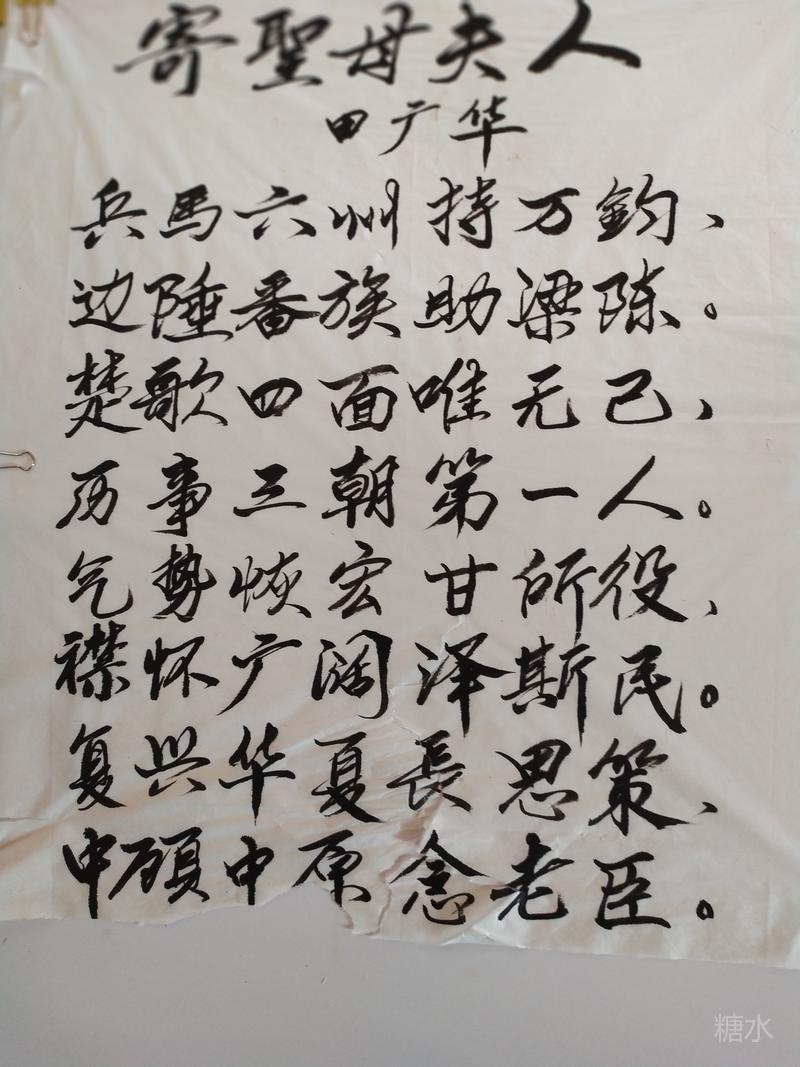 寄聖母夫人
田广华
兵馬六州持万鈞、
边陲番族助梁陈。
楚歌四面唯无己、
历事三朝第一人。
气势恢宏甘所役、
襟怀广阔泽斯民。
复兴华夏長思策、
中顾中原念老臣。
糖水